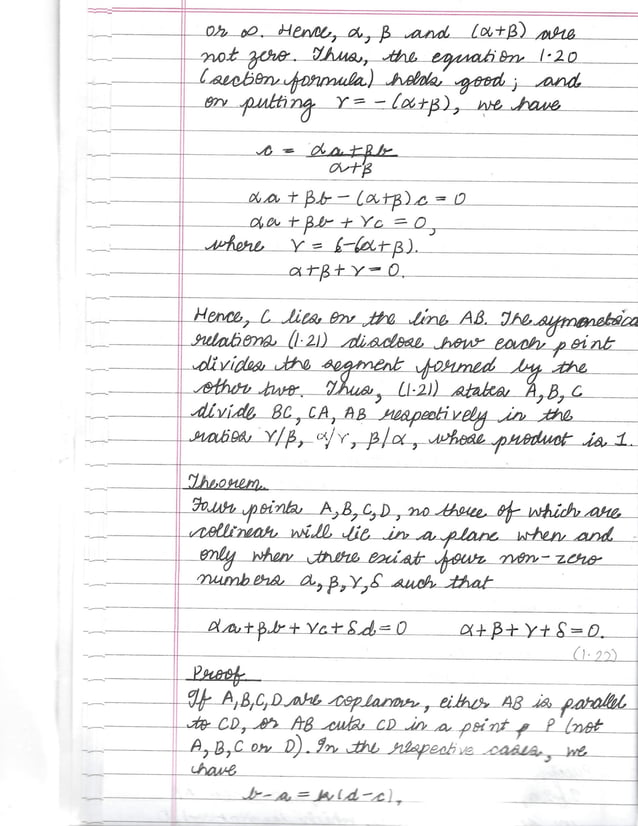 or ∞. Hence, α, β and (α+β) are
not zero. Thus, the equation 1.20
(section formula) holds good; and
on putting γ = -(α+β), we have
c = αa+βb
α+β
αa + βb - (α+β)c = 0
αa + βb + γc = 0,
where γ = -(α+β).
α+β+γ=0.
Hence, C lies on the line AB. The symmetrical
relations (1.21) disclose how each point
divides the segment formed by the
other two. Thus, (1.21) states A, B, C
divide BC, CA, AB respectively in the
ratios γ/β, α/γ, β/α, whose product is 1.
Theorem
Four points A, B, C, D, no three of which are
collinear will lie in a plane when and
only when there exist four non-zero
numbers α, β, γ, δ such that
αa+βb+γc+δd=0 α+β+γ+δ=0.
(1.22)
Proof
If A, B, C, D are coplanar, either AB is parallel
to CD, or AB cuts CD in a point P (not
A, B, C or D). In the respective cases, we
have
b-a=k(d-c),